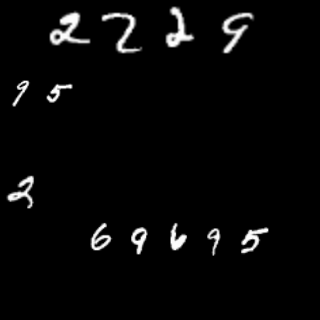 2229
95
2
69695